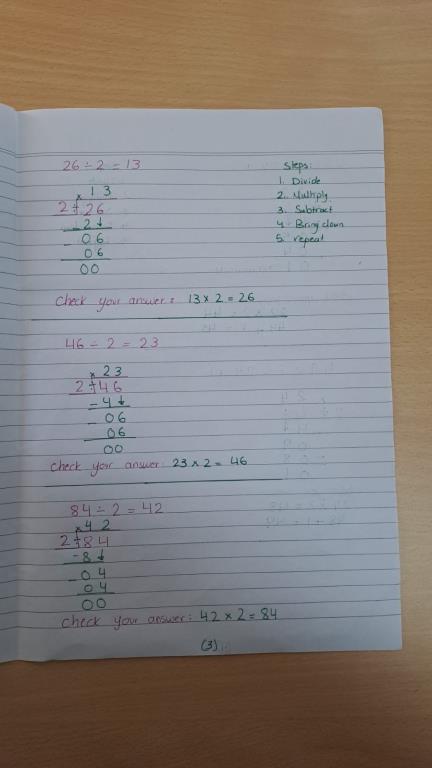 26 ÷ 2 = 13
Steps:
1. Divide
2. Multiply
3. Subtract
4. Bring down
5. repeat
× 1 3
2 ÷ 26
- 2 ↓
- 0 6
0 6
0 0
Check your answer: 13 × 2 = 26
46 ÷ 2 = 23
× 2 3
2 ÷ 4 6
- 4 ↓
- 0 6
0 6
0 0
check your answer: 23 × 2 = 46
84 ÷ 2 = 42
× 4 2
2 ÷ 8 4
- 8 ↓
- 0 4
0 4
0 0
check your answer: 42 × 2 = 84
(3)